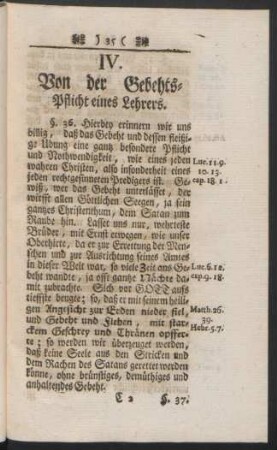 ) 35 (
IV.
Von der Gebehts-
Pflicht eines Lehrers.
§. 36. Hierbey erinnern wir uns
billig, daß das Gebeht und dessen fleißi-
ge Ubung eine gantz besondere Pflicht
und Nothwendigkeit, wie eines jeden
wahren Christen, also insonderheit eines
jeden rechtgesinneten Predigers ist. Ge-
wiß, wer das Gebeht unterlässet, der
wirfft allen Göttlichen Seegen, ja sein
gantzes Christenthum, dem Satan zum
Raube hin. Lasset uns nur, wehrteste
Brüder, mit Ernst erwegen, wie unser
Oberhirte, da er zur Errettung der Men-
schen und zur Ausrichtung seines Amtes
in dieser Welt war, so viele Zeit aus Ge-
beht wandte, ja offt gantze Nächte da-
mit zubrachte. Sich vor GOTT aufs
tieffste beugte; so, daß er mit seinem heili-
gen Angesicht zur Erden nieder fiel,
und Gebeht und Flehen, mit star-
ckem Geschrey und Thränen opffer-
te; so werden wir überzeuget werden,
daß keine Seele aus den Stricken und
dem Rachen des Satans gerettet werden
könne, ohne brünstiges, demüthiges und
anhaltendes Gebeht.
C 2 §. 37.
Luc. 11. 9.
10. 13.
cap. 18. 1.
Luc. 6. 12.
cap. 9. 18.
Matth. 26.
39.
Hebr. 5. 7.